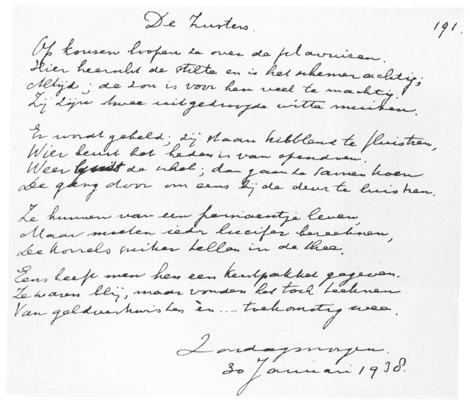 De Zusters.
191.
Op kousen loopen ze over de plavuizen.
Hier heerscht de stilte en is het schemerachtig;
Altijd; de zon is voor hen veel te machtig.
Zij zijn twee uitgedroogde witte muizen.
Er wordt gebeld; zij staan te fluistren,
Wier het heden is van
Weer de schel; dan gaan ze samen
De gang door om eens bij de deur te luistren.
Ze kunnen van een leven,
Maar moeten ieder lucifer berekenen,
De korrels suiker tellen in de thee.
Eens heeft men hen een kerstpakket gegeven.
Ze waren blij, maar vonden het toch teekenen
Van geldverkwisten èn ... toekomstig wee.
Zondagmorgen.
30 Januari 1938.